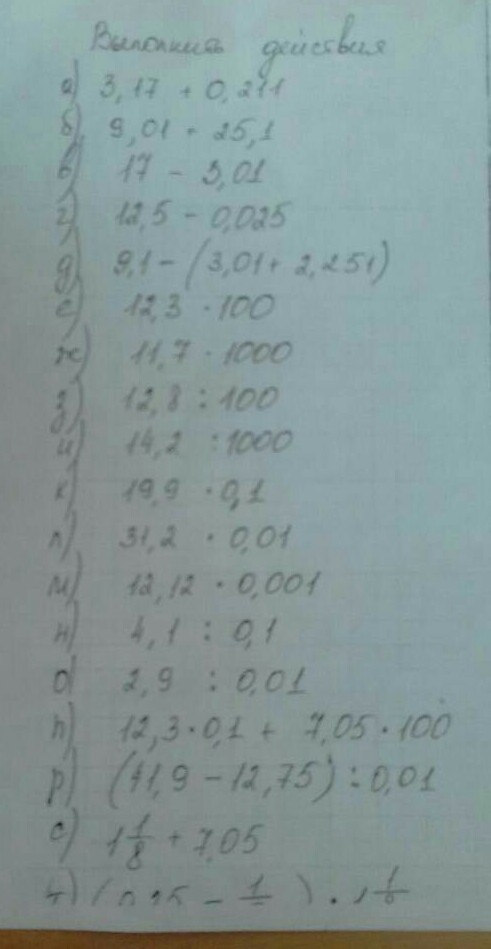 Выполнить действия
а) 3,17 + 0,211
б) 9,01 + 25,1
в) 17 - 3,01
г) 12,5 - 0,025
д) 9,1 - (3,01 + 2,251)
е) 12,3 · 100
ж) 11,7 · 1000
з) 12,8 : 100
и) 14,2 : 1000
к) 19,9 · 0,1
л) 31,2 · 0,01
м) 12,12 · 0,001
н) 4,1 : 0,1
о) 2,9 : 0,01
п) 12,3 · 0,1 + 7,05 · 100
р) (41,9 - 12,75) : 0,01
с) 1 1/8 + 7,05